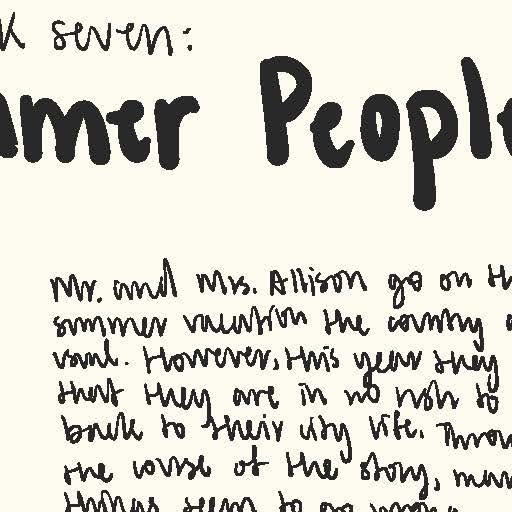 k seven:
mmer People
Mr. and Mrs. Allison go on th
summer vacation the country
usual. However, this year they
that they are in no rush to
back to their city life. Throu
the course of the story, man
things seem to go wrong